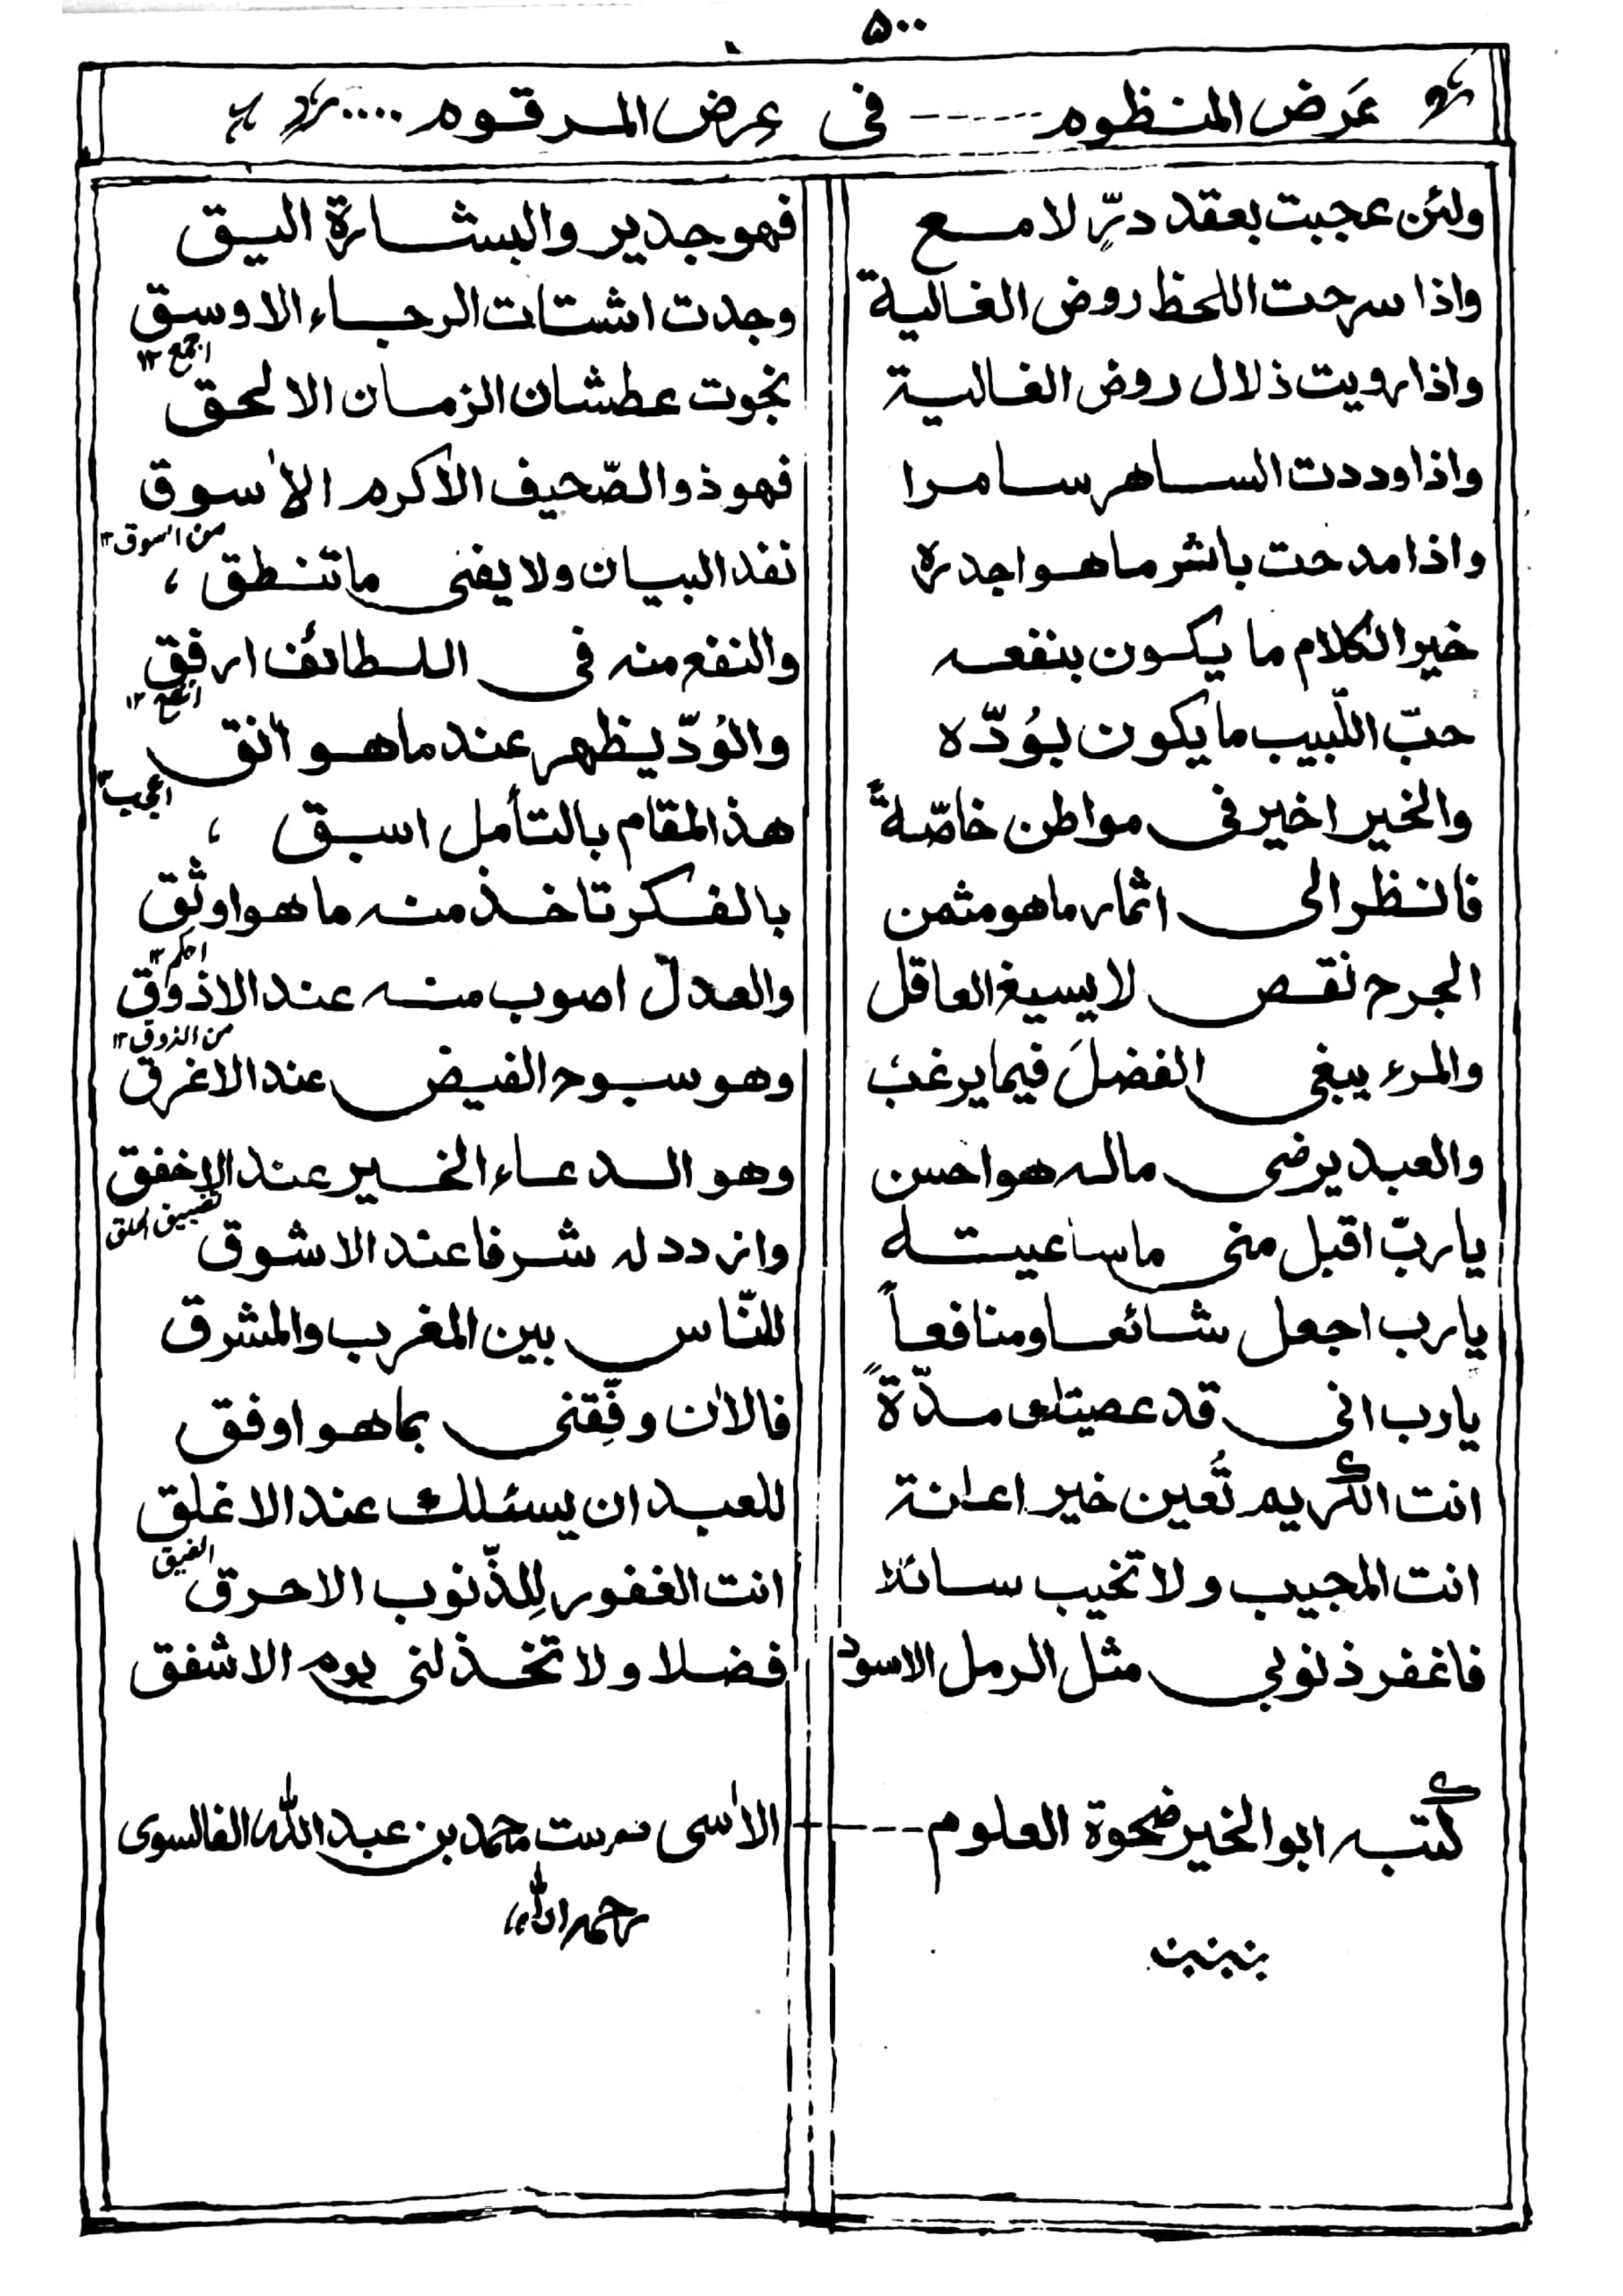 ۵۰۰
عَرض المنظوم ------ فى عِرض المرقوم ....
ولئن عجبت بعقد درٍّ لامع فهو جدير والبشارة اليق
واذا سرحت اللحظ روض الغالية وجدت اشتات الرجاء الاوسق
اجمع ١٢
واذا رويت ذلال روض الغالية نجوت عطشان الزمان الالحق
واذا وددت الساهر سامرا فهو ذو الصّحيف الاكرم الاسوق
من السوق ١٢
واذا مدحت بالشر ما هو اجدره نفد البيان ولا يفنى ما تنطق ،
خير الكلام ما يكون بنفعه والنفع منه فى اللطائف ارفق
انفع ١٢
حبّ اللّبيب ما يكون بوُدّه والوُدّ يظهر عند ما هو انق
اعجب ١٢
والخير اخير فى مواطن خاصّةً هذا المقام بالتأمل اسبق ،
فالنظر الى اثمار ما هو مثمن بالفكر تاخذ منه ما هو اوثق
احكم ١٢
الجرح نقص لا يسيغ العاقل والعدل اصوب منه عند الاذوق
من الذوق ١٢
والمرء يبغى الفضلَ فيما يرغب وهو سبوح الفيض عند الاغرق
والعبد يرضى ماله هو احسن وهو الدعاء الخير عند الاخفق
يا ربّ اقبل منى ما ساعيته وازدد له شرفا عند الاشوق
يا رب اجعل شائعا ومنافعاً للنّاس بين المغرب والمشرق
يا رب انى قد عصيتك مدّةً فالان وفِّقنى بما هو اوفق
انت الكريم تُعين خير اعانة للعبد ان يسئلك عند الاغلق
الضيق
انت المجيب ولا تخيب سائلا انت الغفور لِلذّنوب الاحرق
فاغفر ذنوبي مثل الرمل الاسود فضلا ولا تخذلنى يوم الاشفق
كتبه ابو الخير ضحوة العلوم ---- الاٰسى محمد بن عبد الله الفالسوى
رحمه الله